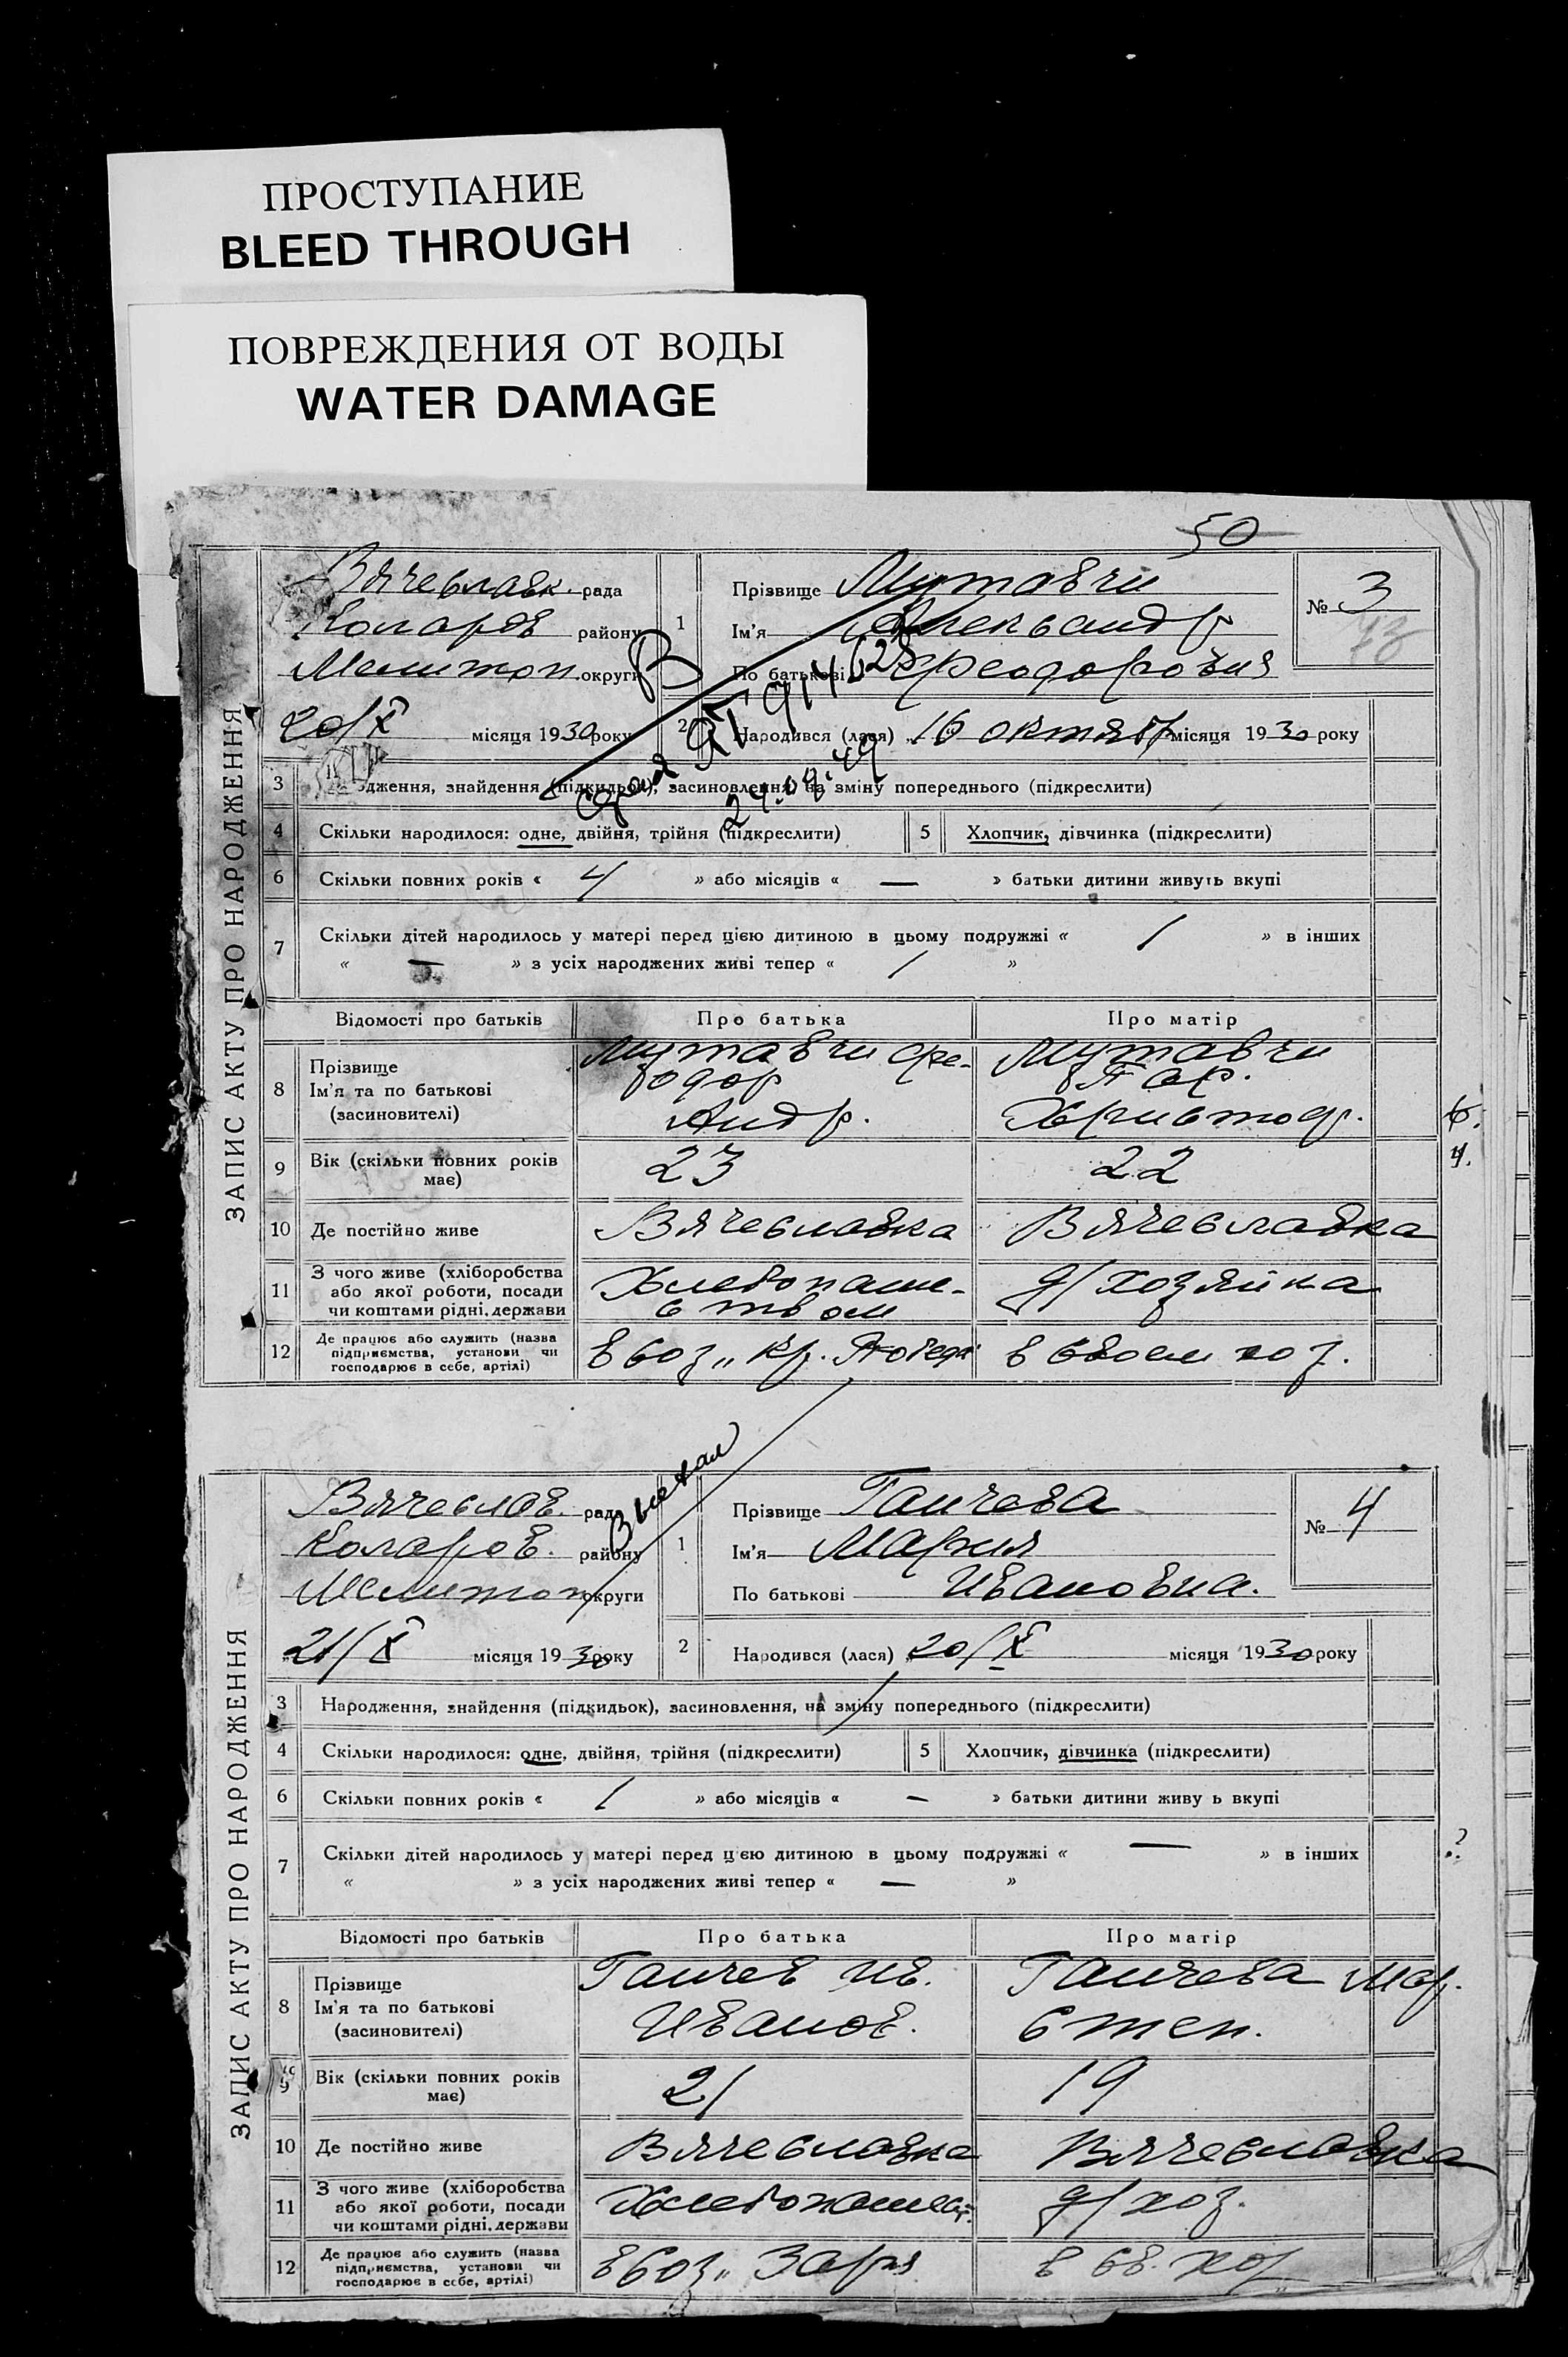 ПРОСТУПАНИЕ
BLEED THROUGH
ПОВРЕЖДЕНИЯ ОТ ВОДЫ
WATER DAMAGE
50
ЗАПИС АКТУ ПРО НАРОДЖЕННЯ
Вячеславк. рада
Коларов району
Мелитоп. округи
1
Прізвище Мутавчи
Ім'я Александр
По батькові Феодорович
№ 3
73
В
серия
24.09.49
20/X місяця 1930 року
2 Народився (лася) 16 октября місяця 1930 року
3 дження, знайдення (підкидьок), засиновлення, на зміну попереднього (підкреслити)
4 Скільки народилося: одне, двійня, трійня (підкреслити) 5 Хлопчик, дівчинка (підкреслити)
6 Скільки повних років « 4 » або місяців « — » батьки дитини живуть вкупі
7 Скільки дітей народилось у матері перед цією дитиною в цьому подружжі « 1 » в інших
« — » з усіх народжених живі тепер « 1 »
Відомості про батьків Про батька Про матір
8 Прізвище
Ім'я та по батькові
(засиновителі)
Мутавчи Фе-
одор
Андр.
Мутавчи
Христоф.
9 Вік (скільки повних років має) 23 22
10 Де постійно живе Вячеславка Вячеславка
11 З чого живе (хліборобства
або якої роботи, посади
чи коштами рідні, держави
Хлебопаше-
ством
д/хозяйка
12 Де працює або служить (назва
підприємства, установи чи
господарює в себе, артілі)
в соз „Кр. Победа" в своем хоз.
ЗАПИС АКТУ ПРО НАРОДЖЕННЯ
Вячеслов. рада
Коларов. району
Мелитоп округи
Выехал
1
Прізвище Ганчева
Ім'я Мария
По батькові Ивановна.
№ 4
21/X місяця 1930 року
2 Народився (лася) 20/X місяця 1930 року
3 Народження, знайдення (підкидьок), засиновлення, на зміну попереднього (підкреслити)
4 Скільки народилося: одне, двійня, трійня (підкреслити) 5 Хлопчик, дівчинка (підкреслити)
6 Скільки повних років « 1 » або місяців « — » батьки дитини живу ь вкупі
7 Скільки дітей народилось у матері перед цією дитиною в цьому подружжі « — » в інших
« » з усіх народжених живі тепер « — »
?
Відомості про батьків Про батька Про матір
8 Прізвище
Ім'я та по батькові
(засиновителі)
Ганчев Ив.
Иванов.
Ганчева Мар.
Степ.
9 Вік (скільки повних років має) 21 19
10 Де постійно живе Вячеславка Вячеславка
11 З чого живе (хліборобства
або якої роботи, посади
чи коштами рідні, держави
Хлебопашест. д/хоз.
12 Де працює або служить (назва
підприємства, установи чи
господарює в себе, артілі)
в соз „Заря в св. хоз